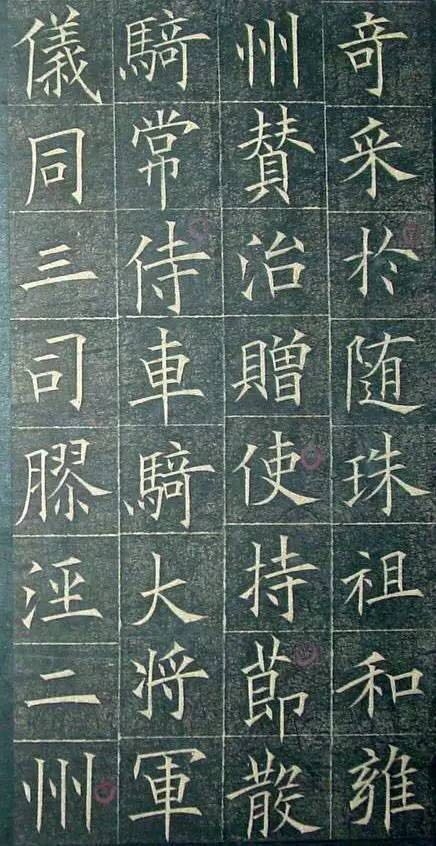 奇采於随珠祖和雍
州賛治贈使持莭散
騎常侍車騎大将軍
儀同三司膠涇二州